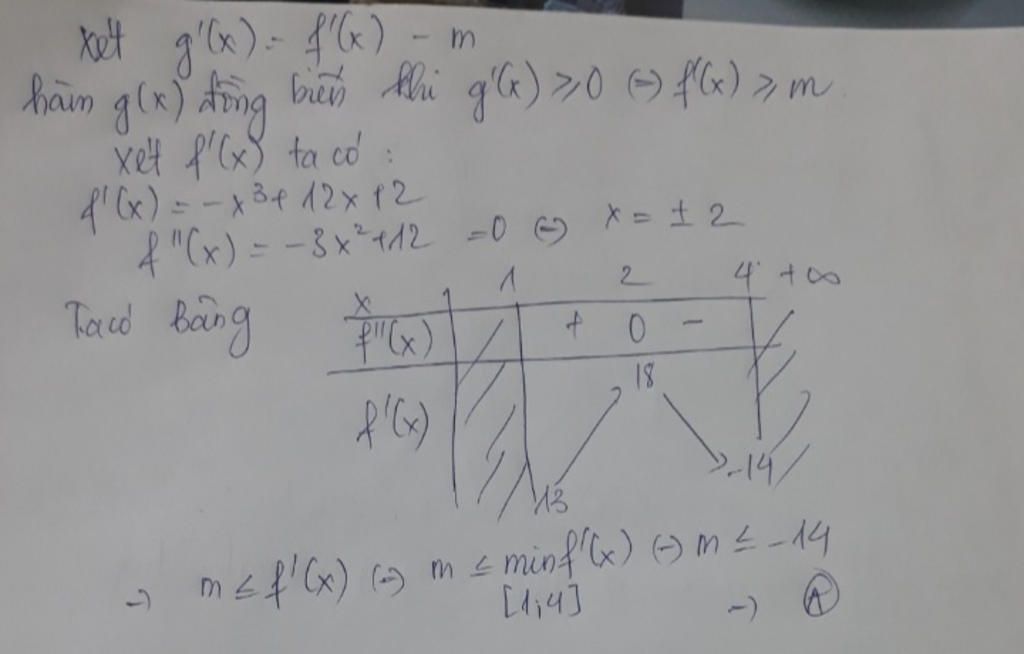 xét g'(x) = f'(x) - m
hàm g(x) đồng biến khi g'(x) ≥ 0 (=) f'(x) ≥ m
xét f'(x) ta có :
f'(x) = -x³ + 12x + 2
f''(x) = -3x² + 12 = 0 (=) x = ± 2
Ta có bảng
x 1 2 4 +∞
f''(x) + 0 -
18
f'(x)
-14
13
=) m ≤ f'(x) (=) m ≤ min f'(x) (=) m ≤ -14
[1;4] =) A